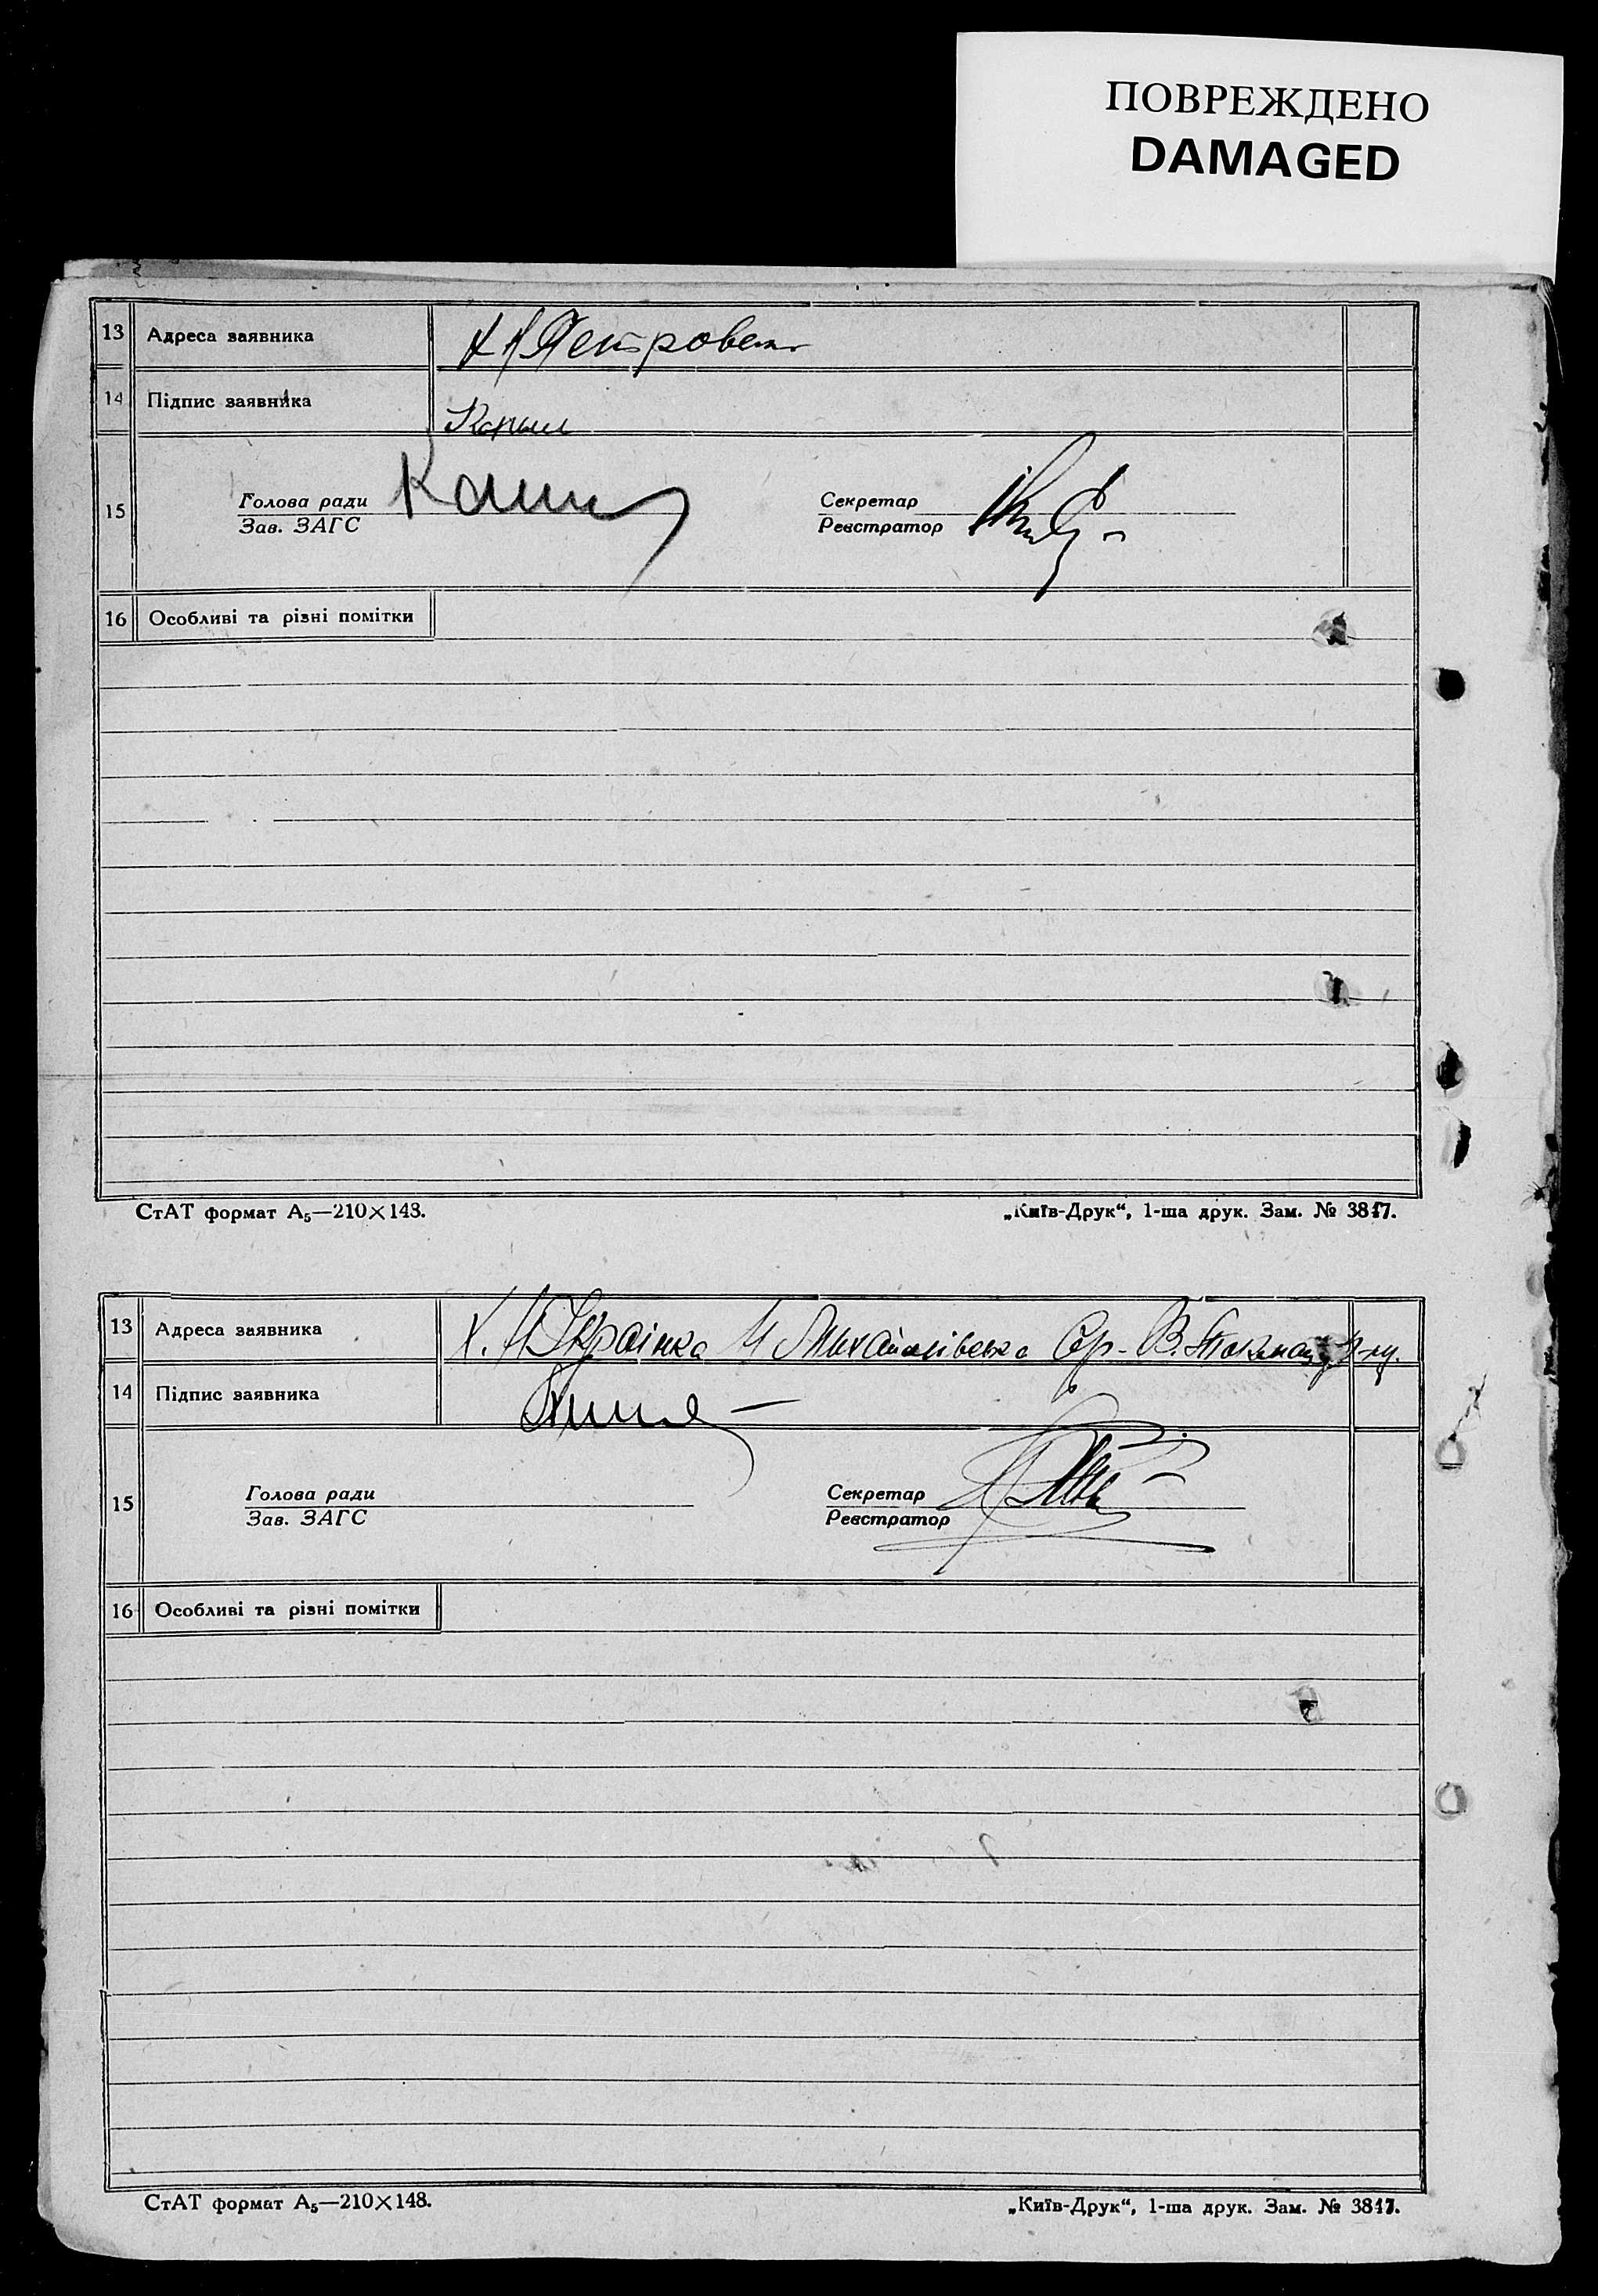 ПОВРЕЖДЕНО
DAMAGED
13 Адреса заявника Х Н Петровська
14 Підпис заявника
15 Голова ради Секретар
Зав. ЗАГС Реєстратор
16 Особливі та різні помітки
СтАТ формат А₅—210×143. „Київ-Друк“, 1-ша друк. Зам. № 3817.
13 Адреса заявника Х. Н Українка М Михайлівська В. Токмац
14 Підпис заявника
15 Голова ради Секретар
Зав. ЗАГС Реєстратор
16 Особливі та різні помітки
СтАТ формат А₅—210×148. „Київ-Друк“, 1-ша друк. Зам. № 3817.